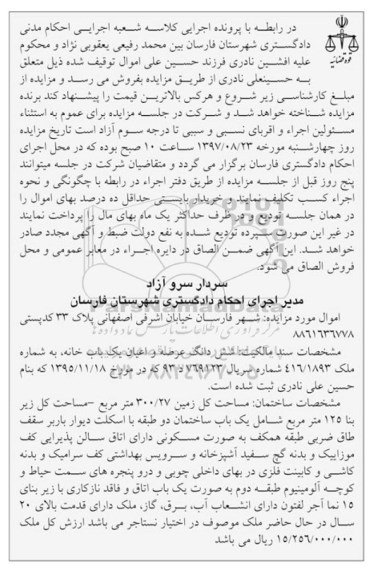 در رابطه با پرونده اجرایی کلاسه شعبه اجرایی احکام مدنی
دادگستری شهرستان فارسان بین محمد رفیعی یعقوبی نژاد و محکوم
علیه افشین نادری فرزند حسین علی اموال توقیف شده ذیل متعلق
به حسینعلی نادری از طریق مزایده بفروش می رسد و مزایده از
مبلغ کارشناسی زیر شروع و هرکس بالاترین قیمت را پیشنهاد کند برنده
مزایده شناخته خواهد شد و شرکت در جلسه مزایده برای عموم به استثناء
مسئولین اجراء و اقربای نسبی و سببی تا درجه سوم آزاد است تاریخ مزایده
روز چهارشنبه مورخه ۱۳۹۷/۰۸/۲۳ ساعت ۱۰ صبح بوده که در محل اجرای
احکام دادگستری فارسان برگزار می گردد و متقاضیان شرکت در جلسه میتوانند
پنج روز قبل از جلسه مزایده از طریق دفتر اجراء در رابطه با چگونگی و نحوه
اجراء کسب تکلیف نمایند و خریدار بایستی حداقل ده درصد بهای اموال را
در همان جلسه تودیع و در ظرف حداکثر یک ماه بهای مال را پرداخت نمایند
در غیر این صورت سپرده تودیع شده به نفع دولت ضبط و آگهی مجدد صادر
خواهد شد. این آگهی ضمن الصاق در دایره اجراء در معابر عمومی و محل
فروش الصاق می شود.
سردار سرو آزاد
مدیر اجرای احکام دادگستری شهرستان فارسان
اموال مورد مزایده: شهر فارسان خیابان اشرفی اصفهانی پلاک ۳۳ کدپستی
۸۸۶۱۶۳۶۷۷۸
مشخصات سند مالکیت: شش دانگ عرصه و اعیان یک باب خانه، به شماره
ملک ۴۱۶/۱۸۹۳ شماره سریال ۷۶۹۱۲۳ د ۹۳ که در مورخ ۱۳۹۵/۱۱/۱۸ که بنام
حسین علی نادری ثبت شده است.
مشخصات ساختمان: مساحت کل زمین ۳۰۰/۲۷ متر مربع -مساحت کل زیر
بنا ۱۲۵ متر مربع شامل یک باب ساختمان دو طبقه با اسکلت دیوار باربر سقف
طاق ضربی طبقه همکف به صورت مسکونی دارای اتاق سالن پذیرایی کف
موزاییک و بدنه گچ سفید آشپزخانه و سرویس بهداشتی کف سرامیک و بدنه
کاشی و کابینت فلزی در بهای داخلی چوبی و درو پنجره های سمت حیاط و
کوچه آلومینیوم طبقه دوم به صورت یک باب اتاق و فاقد نازکاری با زیر بنای
۱۵ نما آجر لفتون دارای انشعاب آب، برق، گاز، ملک دارای قدمت بالای ۲۰
سال در حال حاضر ملک موصوف در اختیار نستاجر می باشد ارزش کل ملک
۱۵/۲۵۶/۰۰۰/۰۰۰ ریال می باشد